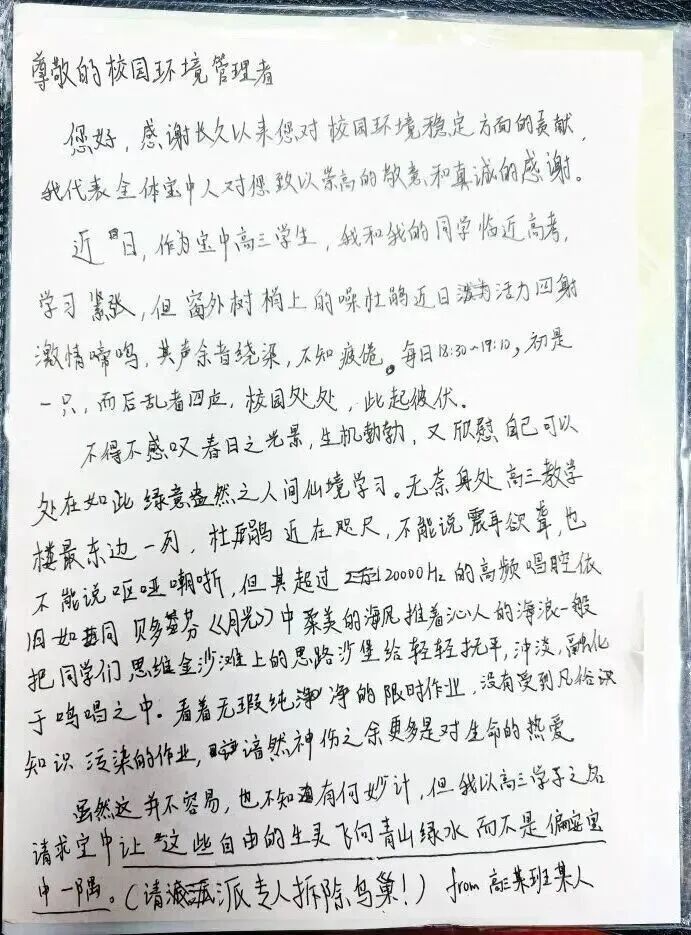 尊敬的校园环境管理者
您好，感谢长久以来您对校园环境稳定方面的贡献，
我代表全体宝中人对您致以崇高的敬意和真诚的感谢。
近日，作为宝中高三学生，我和我的同学临近高考，
学习紧张，但窗外树梢上的噪杜鹃近日活力四射
激情啼鸣，其声余音绕梁，不知疲倦。每日18:30~19:10，初是
一只，而后乱者四应，校园处处，此起彼伏。
不得不感叹春日之光景，生机勃勃，又欣慰自己可以
处在如此绿意盎然之人间仙境学习。无奈身处高三教学
楼最东边一列，杜鹃近在咫尺，不能说震耳欲聋，也
不能说呕哑嘲哳，但其超过20000Hz的高频唱腔依
旧如同贝多芬《月光》中柔美的海风推着沁人的海浪一般
把同学们思维金沙滩上的思路沙堡给轻轻抚平，冲淡，融化
于鸣唱之中。看着无瑕纯净的限时作业，没有受到凡俗识
知识污染的作业，谙然神伤之余更多是对生命的热爱
虽然这并不容易，也不知有何妙计，但我以高三学子之名
请求宝中让这些自由的生灵飞向青山绿水而不是偏安宝
中一隅。（请派专人拆除鸟巢！）from 高三某班某人